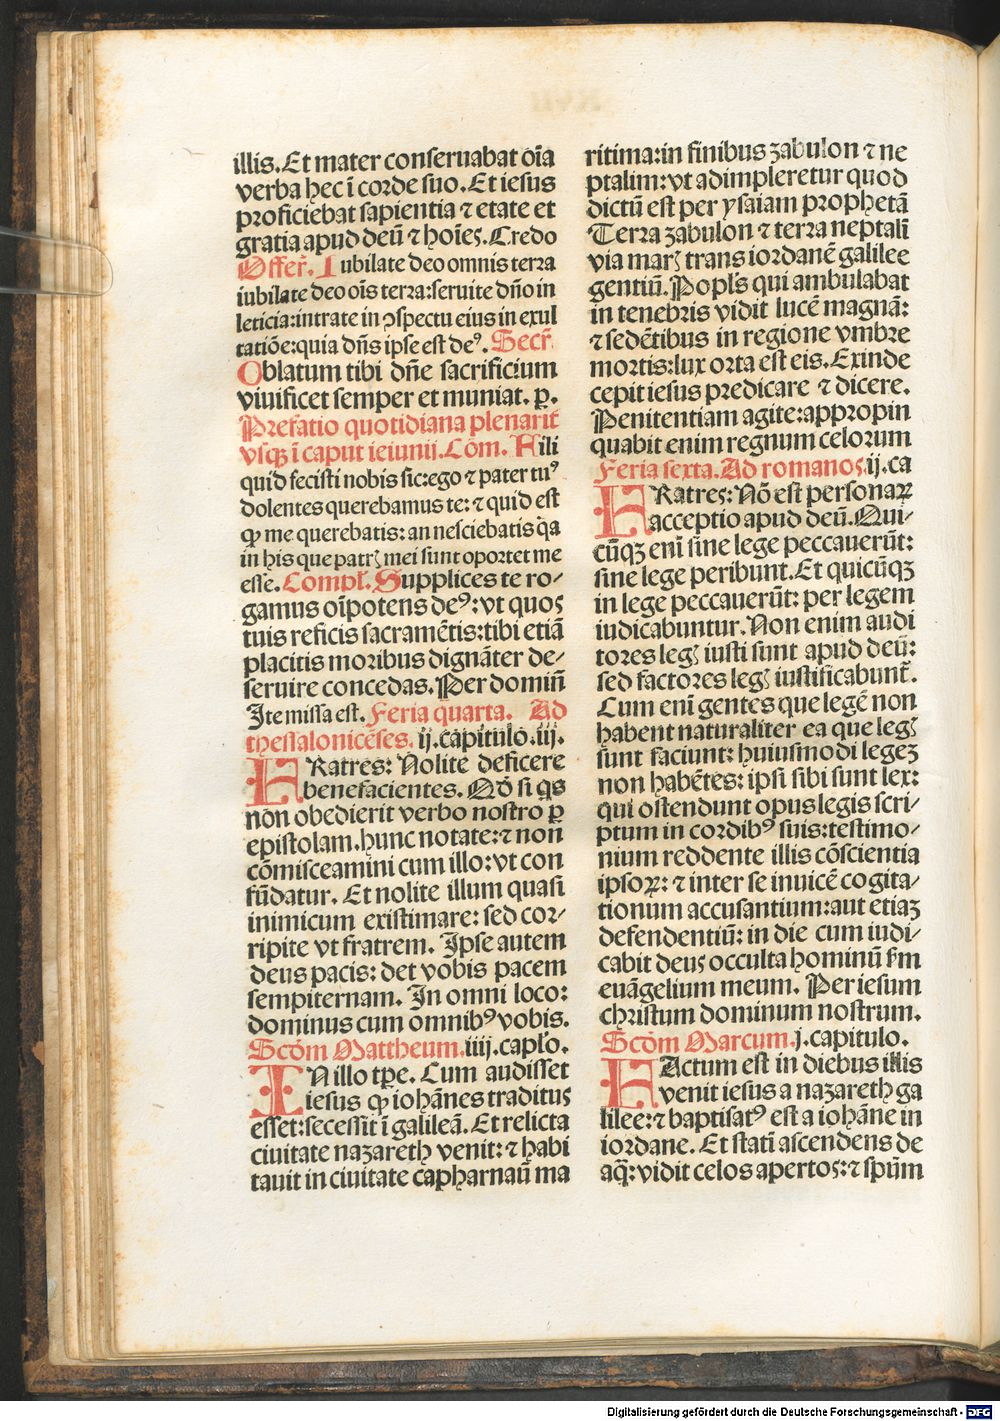 illis. Et mater conseruabat oīa
verba hec ī corde suo. Et iesus
proficiebat sapientia ⁊ etate et
gratia apud deū ⁊ hoīes. Credo
Offer̄. Iubilate deo omnis terra
iubilate deo oīs terra: seruite dn̄o in
leticia: intrate in ꝯspectu eius in exul
tatiōe: quia dn̄s ipse est deꝰ. Secr̄.
Oblatum tibi dn̄e sacrificium
viuificet semper et muniat. ꝑ.
Prefatio quotidiana plenarit̄
vsqꝫ ī caput ieiunii. Cōm. Fili
quid fecisti nobis sic: ego ⁊ pater tuꝰ
dolentes querebamus te: ⁊ quid est
ꝙ me querebatis: an nesciebatis q̄a
in his que patrꝭ mei sunt oportet me
esse. Compl̄. Supplices te ro⸗
gamus oīpotens deꝰ: vt quos
tuis reficis sacramētis: tibi etiā
placitis moribus dignāter de⸗
seruire concedas. Per domin̄
Ite missa est. Feria quarta. Ad
thessalonicēses. ij. capitulo. iij.
FRatres: Nolite deficere
benefacientes. Qd̄ si qs
non obedierit verbo nostro ꝑ
epistolam. hunc notate: ⁊ non
cōmisceamini cum illo: vt con
fūdatur. Et nolite illum quasi
inimicum existimare: sed cor⸗
ripite vt fratrem. Ipse autem
deus pacis: det vobis pacem
sempiternam. In omni loco:
dominus cum omnibꝰ vobis.
Scd̄m Mattheum. iiij. capl̄o.
IN illo tp̄e. Cum audisset
iesus ꝙ iohānes traditus
esset: secessit ī galileā. Et relicta
ciuitate nazareth venit: ⁊ habi
tauit in ciuitate capharnaū ma
ritima: in finibus zabulon ⁊ ne
ptalim: vt adimpleretur quod
dictū est per ysaiam prophetā
Terra zabulon ⁊ terra neptali
via marꝭ trans iordanē galilee
gentiū. Popl̄s qui ambulabat
in tenebris vidit lucē magnā:
⁊ sedētibus in regione vmbre
mortis: lux orta est eis. Exinde
cepit iesus predicare ⁊ dicere.
Penitentiam agite: appropin
quabit enim regnum celorum
Feria sexta. Ad romanos. ij. ca
FRatres: Nō est personaꝝ
acceptio apud deū. Qui⸗
cūqꝫ enī sine lege peccauerūt:
sine lege peribunt. Et quicūqꝫ
in lege peccauerūt: per legem
iudicabuntur. Non enim audi
tores legꝭ iusti sunt apud deū:
sed factores legꝭ iustificabunt̄.
Cum enī gentes que legē non
habent naturaliter ea que legꝭ
sunt faciunt: huiusmodi legeꝫ
non habētes: ipsi sibi sunt lex:
qui ostendunt opus legis scri⸗
ptum in cordibꝰ suis: testimo⸗
nium reddente illis cōscientia
ipsoꝝ: ⁊ inter se inuicē cogita⸗
tionum accusantium: aut etiaꝫ
defendentiū: in die cum iudi⸗
cabit deus occulta hominū s̄m
euāgelium meum. Per iesum
christum dominum nostrum.
Scd̄m Marcum. j. capitulo.
FActum est in diebus illis
venit iesus a nazareth ga
lilee: ⁊ baptisatꝰ est a iohāne in
iordane. Et statī ascendens de
aq̄: vidit celos apertos: ⁊ spūm
Digitalisierung gefördert durch die Deutsche Forschungsgemeinschaft - DFG